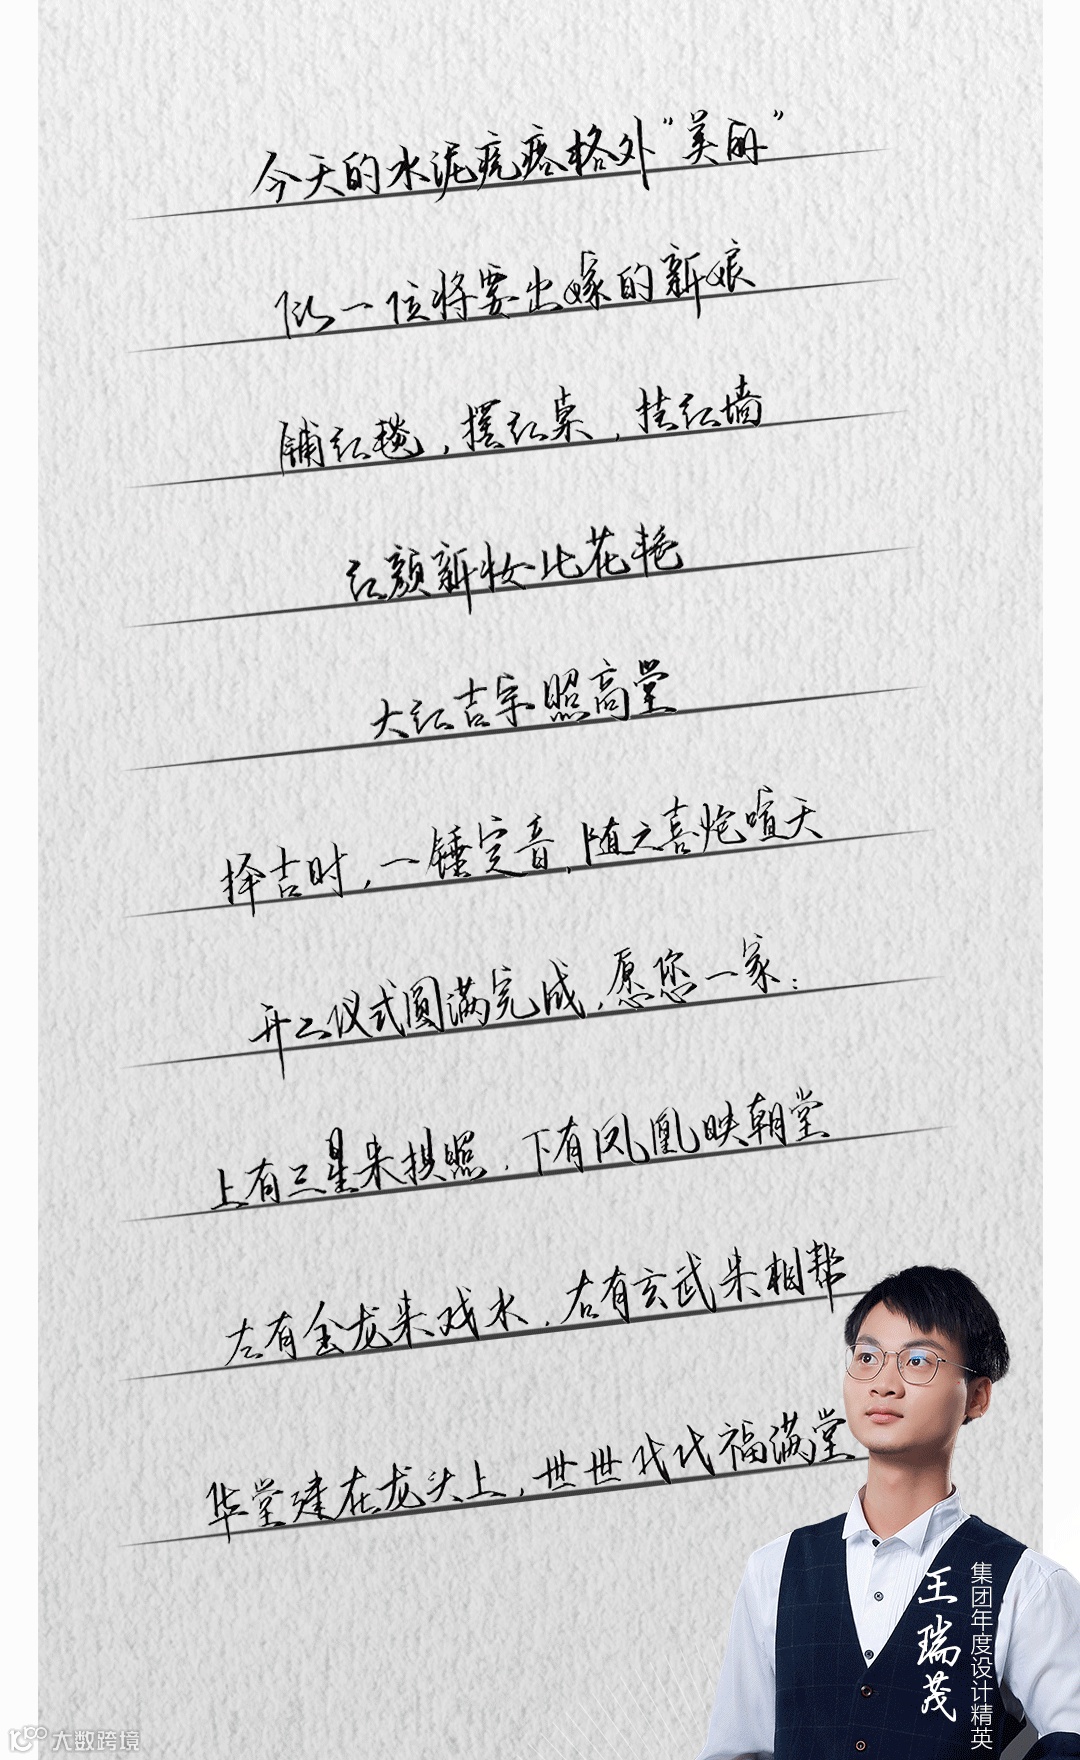 今天的水泥疙瘩格外“美丽”
似一位将要出嫁的新娘
铺红毯，摆红桌，挂红墙
红颜新妆比花艳
大红吉字照高堂
择吉时，一锤定音，随之喜炮喧天
开工仪式圆满完成，愿您一家：
上有三星来拱照，下有凤凰映朝堂
左有金龙来戏水，右有玄武来相帮
华堂建在龙头上，世世代代福满堂
集团年度设计精英
王瑞茂
大数跨境